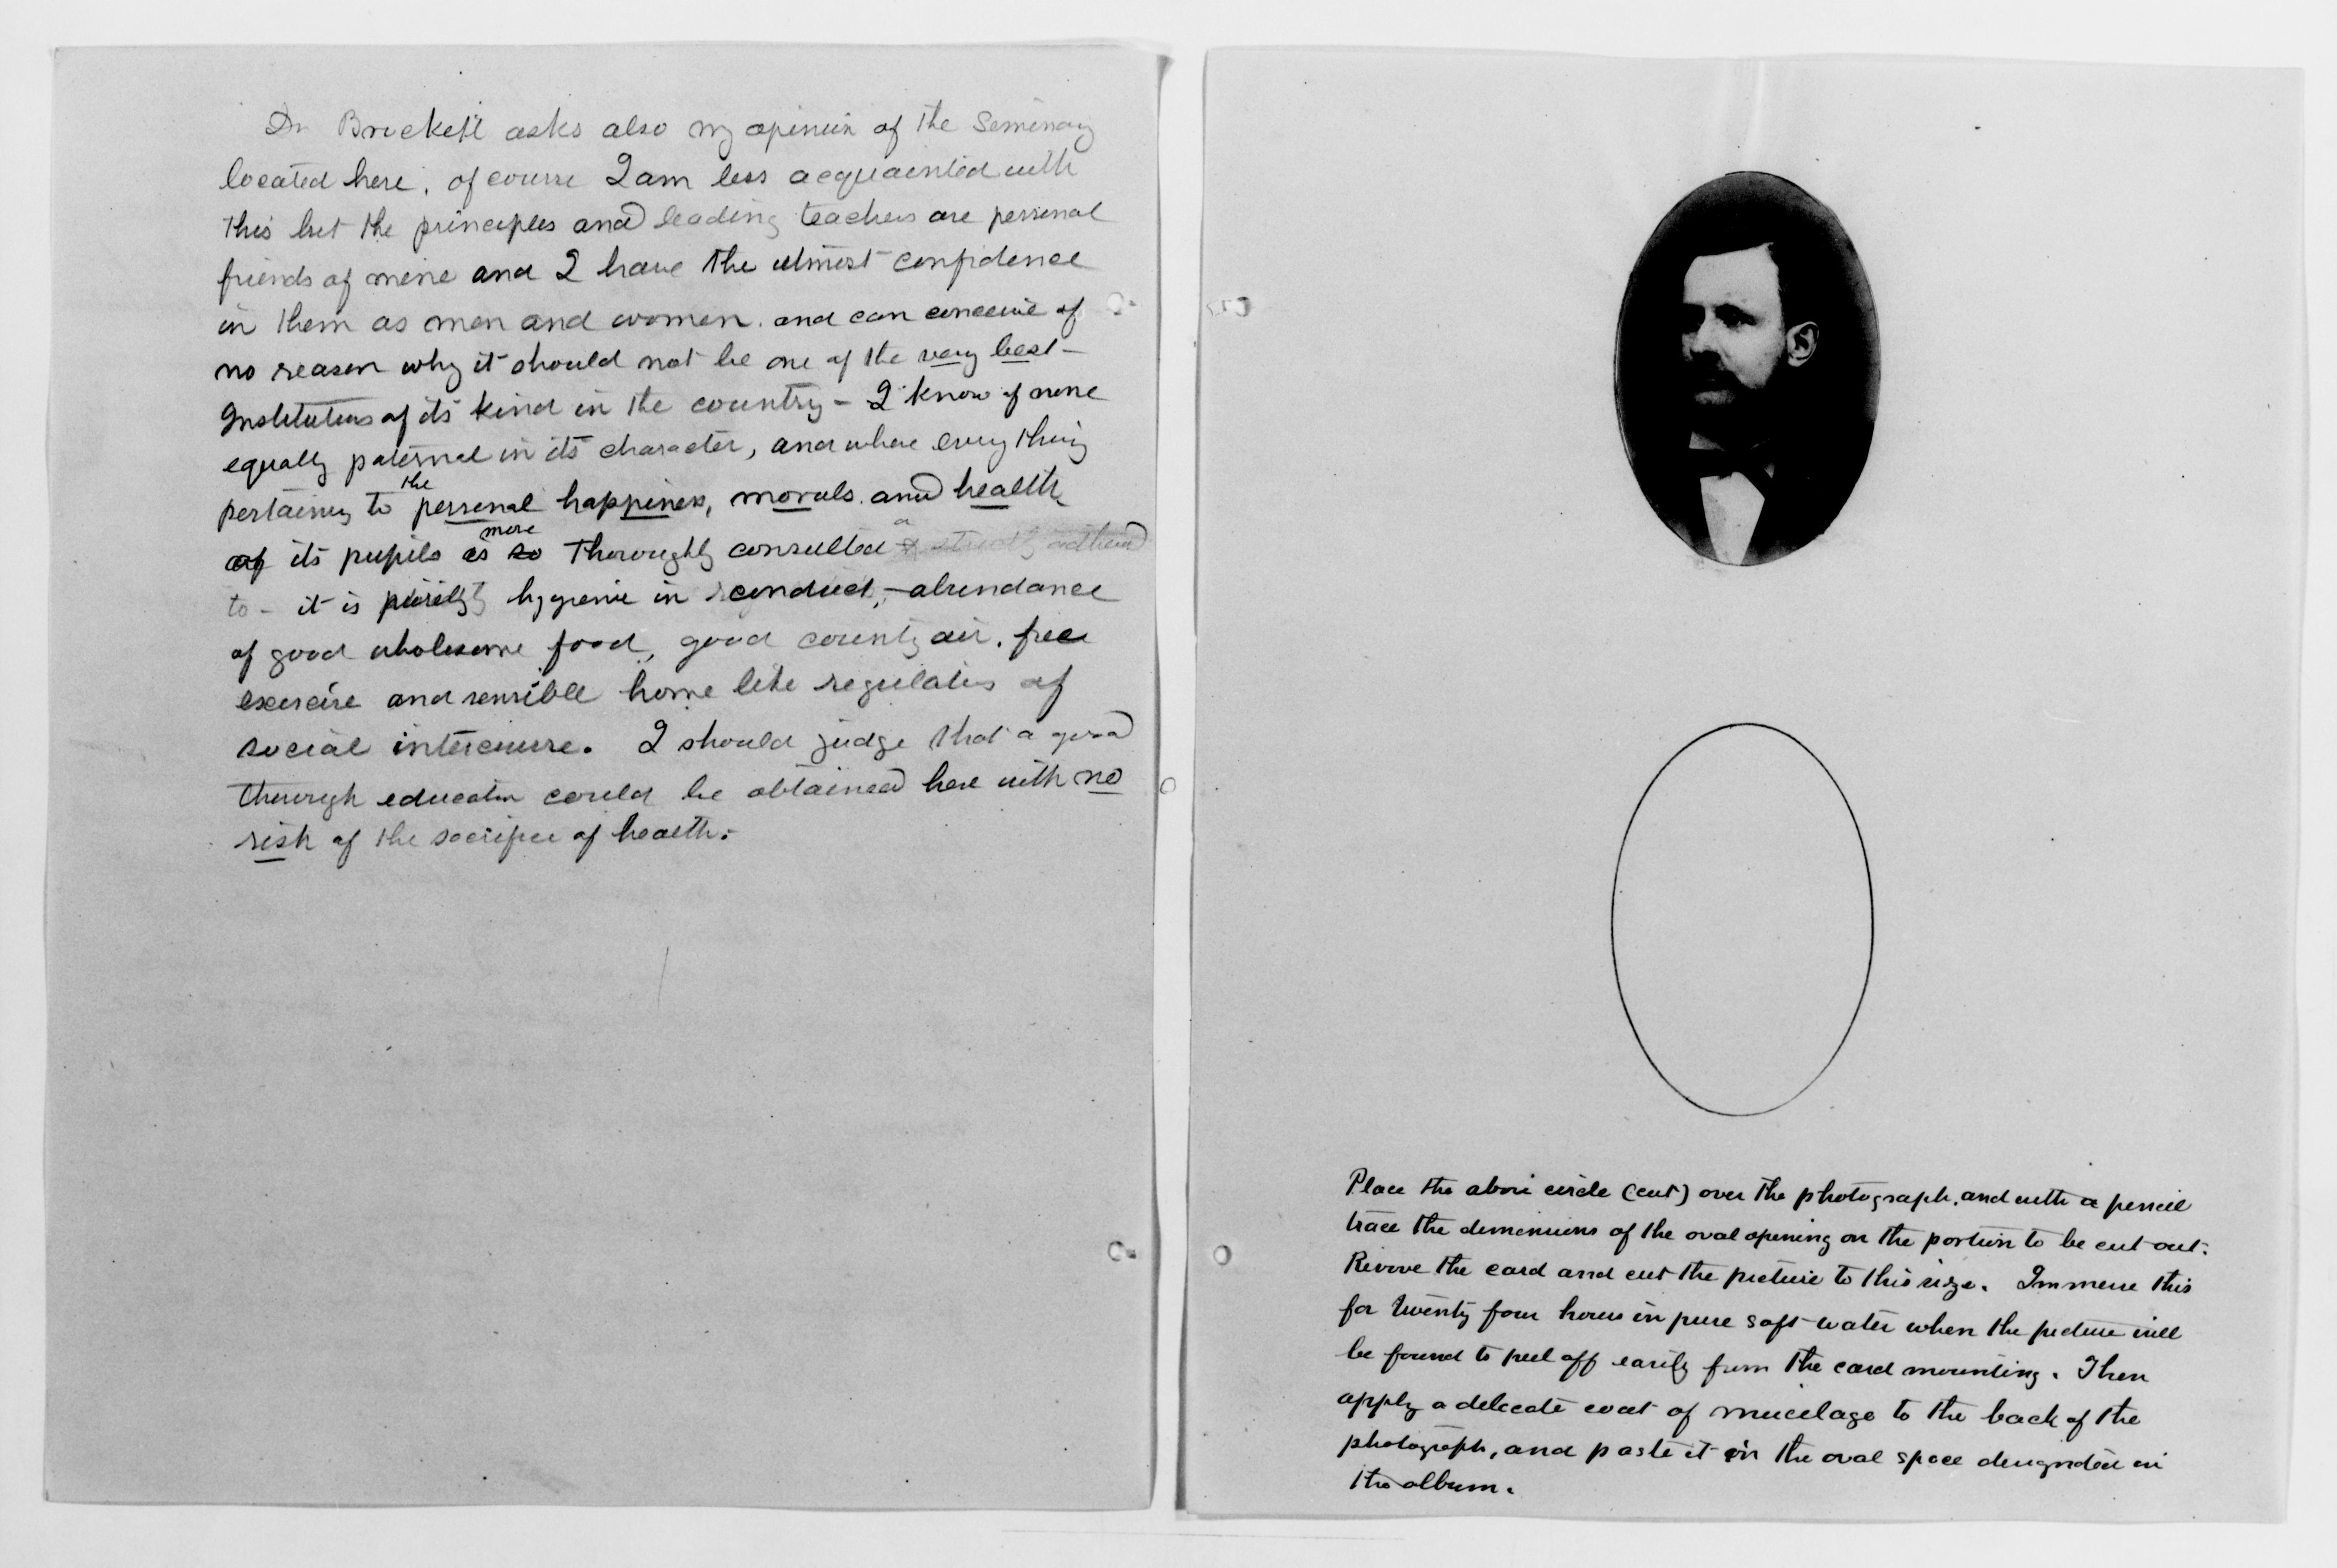 Dr Brockett asks also my opinion of the Seminary
located here, of course I am less acquainted with
this but the principles and leading teachers are personal
friends of mine and I have the utmost confidence
in them as men and women. and can conceive of
no reason why it should not be one of the very best
Institutions of its kind in the country - I know of none
equally paternal in its character, and where every thing
pertaining to the personal happiness, morals and health
of its pupils is so more thoroughly consulted & strictly adhered
to - it is purely hygienic in conduct, - abundance
of good wholesome food, good country air, free
exercise and sensible home like regulations of
social intercourse. I should judge that a good
thorough education could be obtained here with no
risk of the sacrifice of health.
Place the above circle (cut) over the photograph, and with a pencil
trace the dimensions of the oval opening on the portion to be cut out.
the card and cut the picture to this size. Immerse this
for twenty four hours in pure soft water when the picture will
be found to peel off easily from the card mounting. Then
apply a delicate coat of mucilage to the back of the
photograph, and paste it in the oval space designated in
the album.